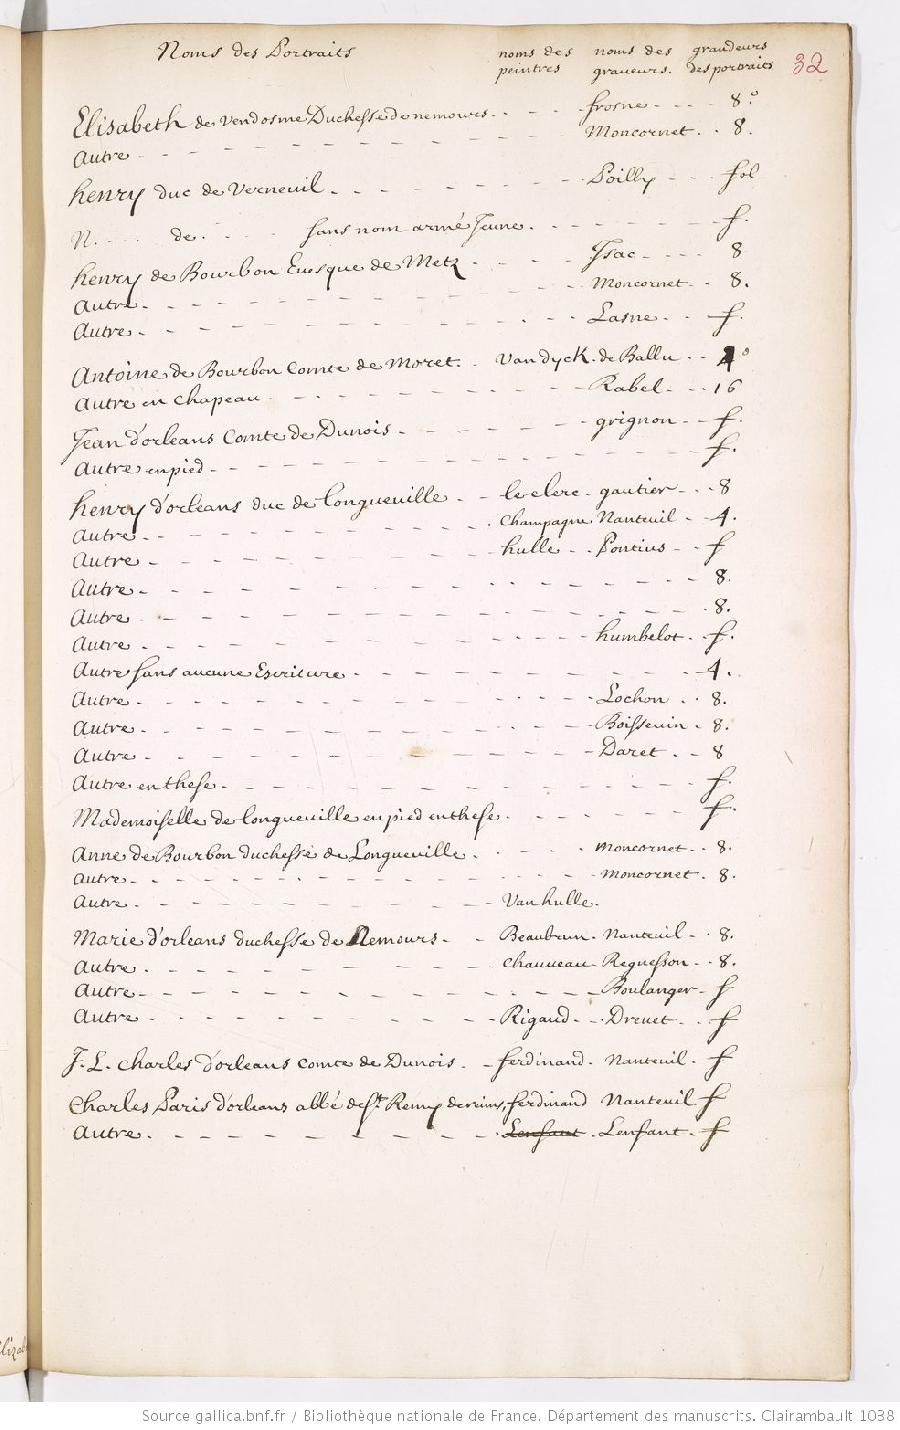 Noms des Portraits noms des peintres noms des graveurs. grandeurs des portraits 32
Elisabeth de Vendosme Duchesse de nemours. frosne 8.°
Autre Moncornet. 8.
henry duc de Verneuil Poilly fol
N. de. sans nom armé Jeune. f.
henry de Bourbon Evesque de Metz Isac 8
Autre Moncornet 8.
Autre Lasne f.
Antoine de Bourbon Comte de Moret. Van dyck. de Ballu 4°
Autre en chapeau Rabel 16
Jean d'orleans Comte de Dunois grignon f.
Autre en pied f.
henry d'orleans duc de longueville le clerc gautier 8
Autre Champagne Nanteuil 4.
Autre hulle Pontius f
Autre 8.
Autre 8.
Autre humbelot. f.
Autre sans aucune Escriture 4.
Autre Lochon 8.
Autre Boissevin 8.
Autre Daret 8
Autre en these f.
Mademoiselle de longueville en pied en these f.
Anne de Bourbon duchesse de Longueville. Moncornet 8.
Autre Moncornet. 8.
Autre Van hulle.
Marie d'orleans duchesse de Nemours Beaubrun. Nanteuil 8.
Autre Chauveau Regnesson 8.
Autre Boulanger f
Autre Rigaud Drevet f
J. L. Charles d'orleans Comte de Dunois. ferdinand. Nanteuil. f
Charles Paris d'orleans abbé de St. Remy de reims, ferdinand Nanteuil f
Autre. Lenfant Lenfant. f
Elizab
Source gallica.bnf.fr / Bibliothèque nationale de France. Département des manuscrits. Clairambault 1038